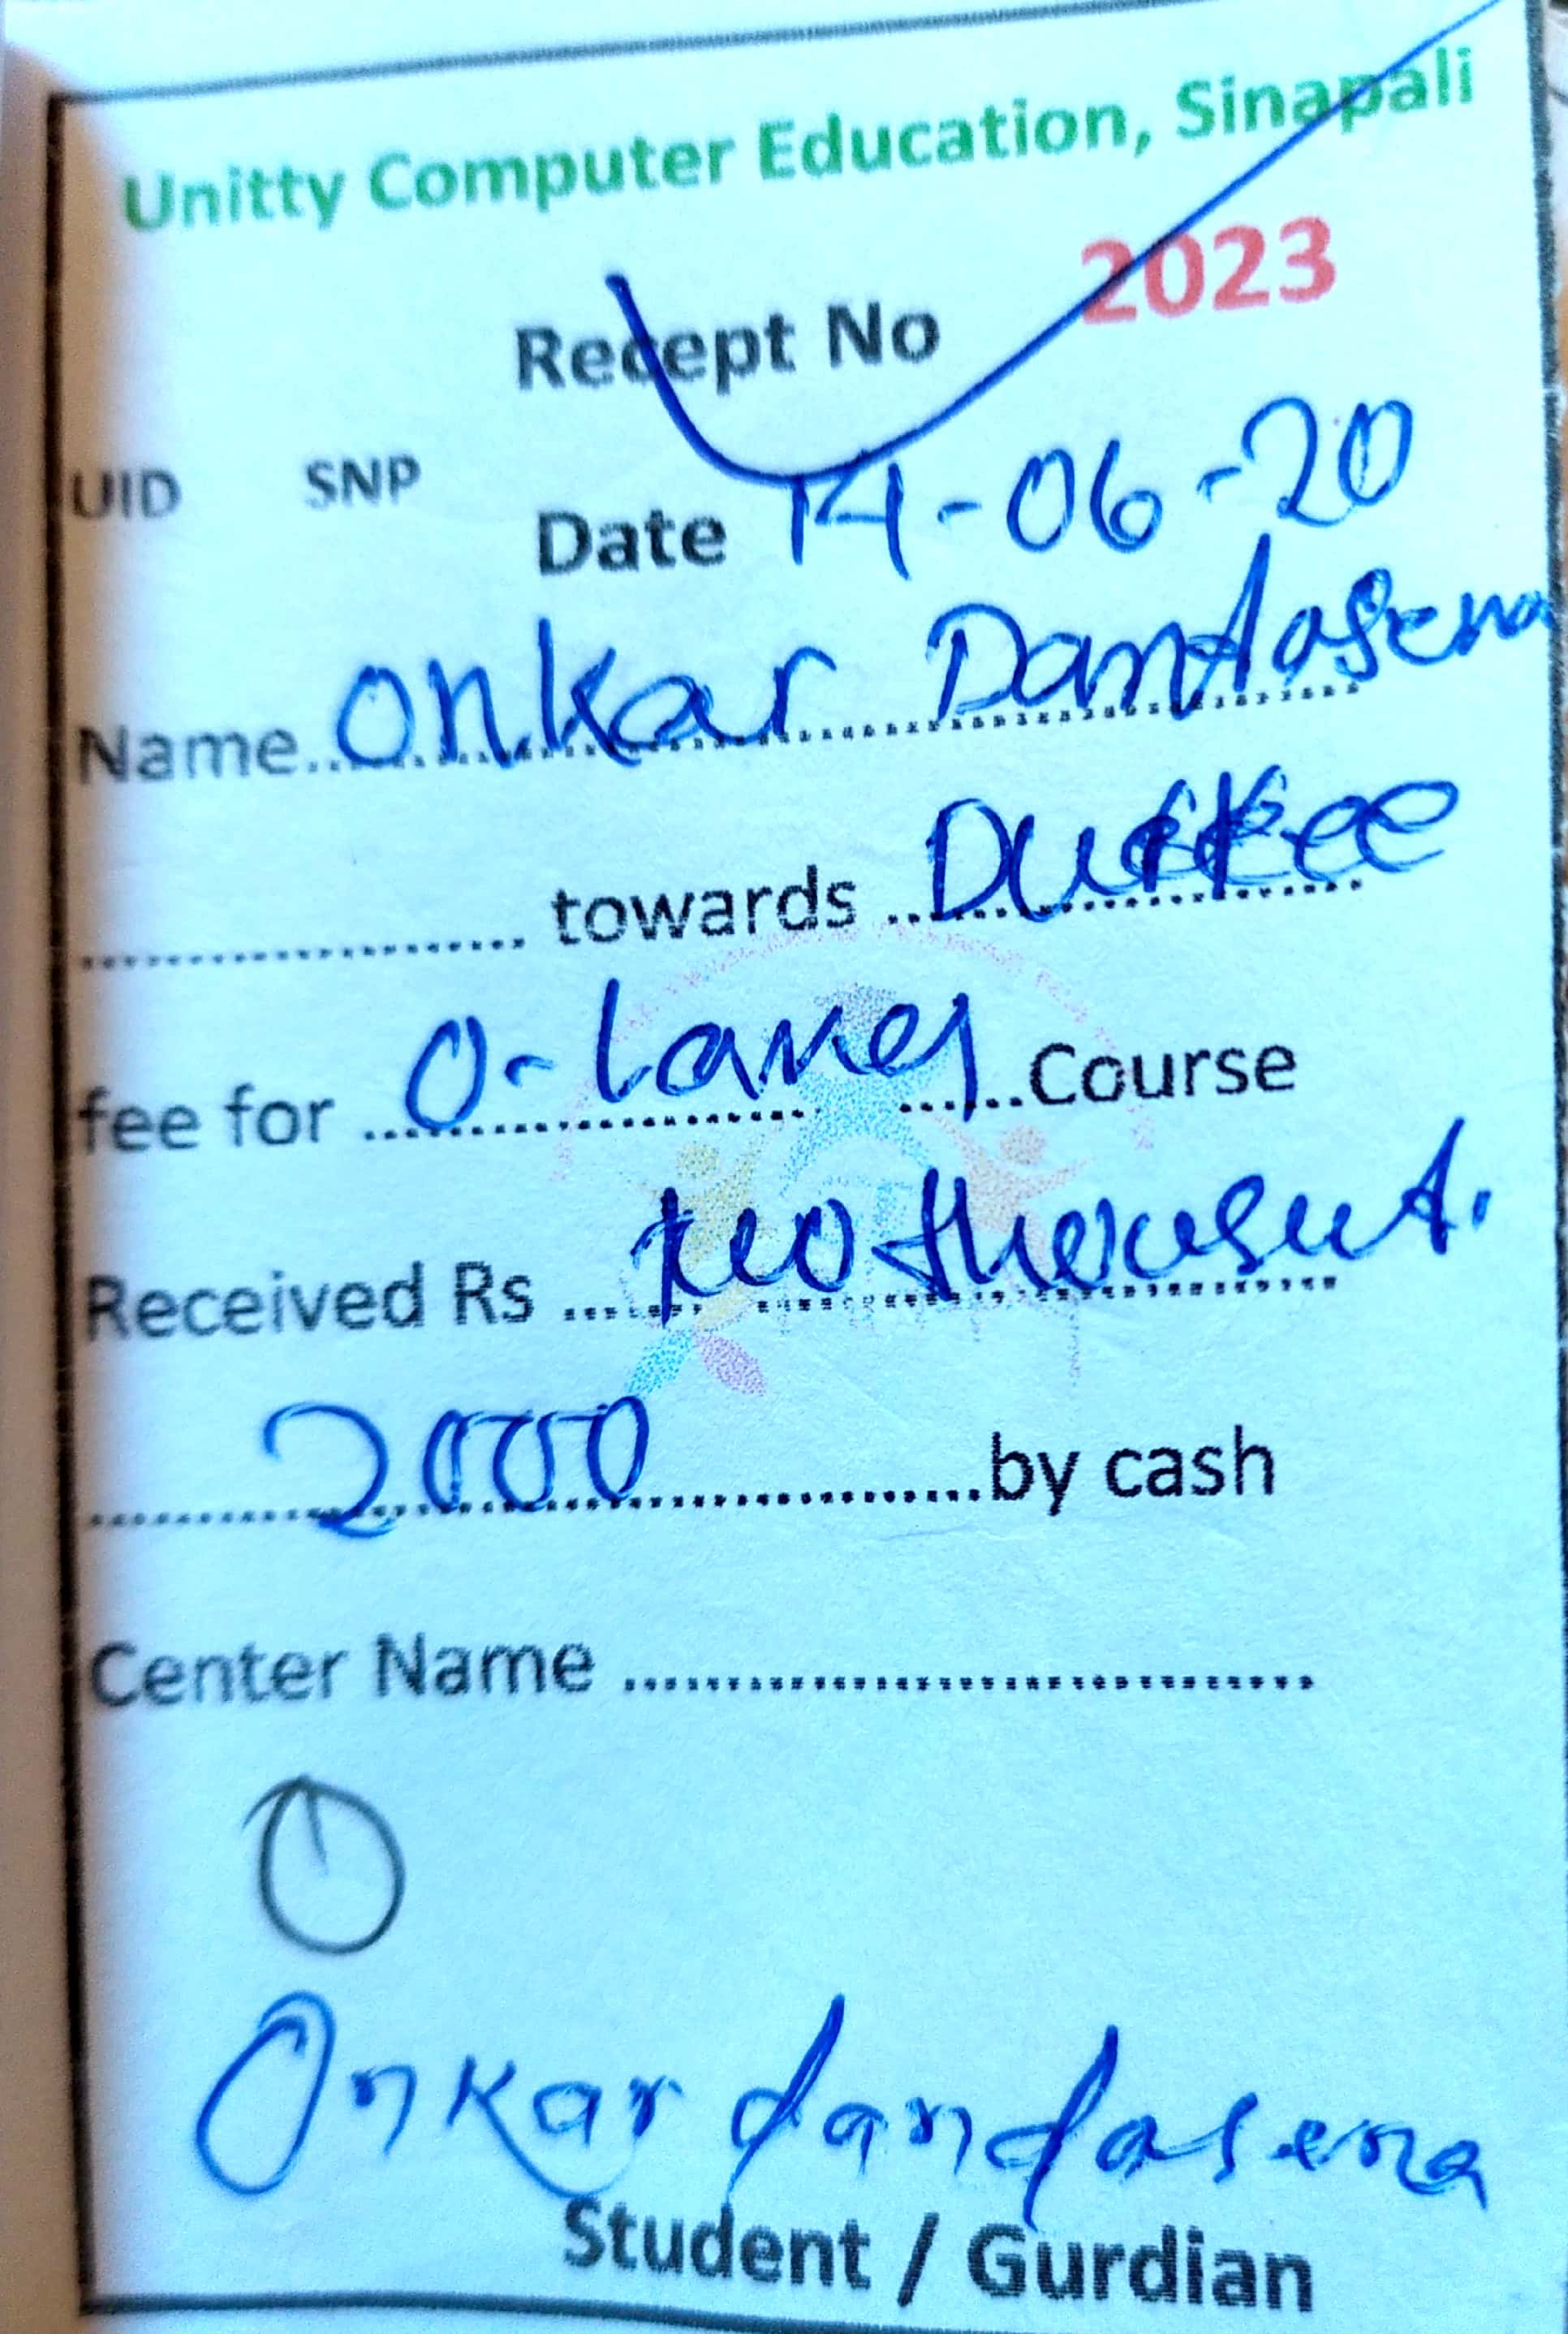 Unitty Computer Education, Sinapali
Recept No 2023
UID SNP
Date 14-06-20
Name onkar Dandasena
towards
fee for O- Course
Received Rs two
2000 by cash
Center Name
Onkar dandasena
Student / Gurdian